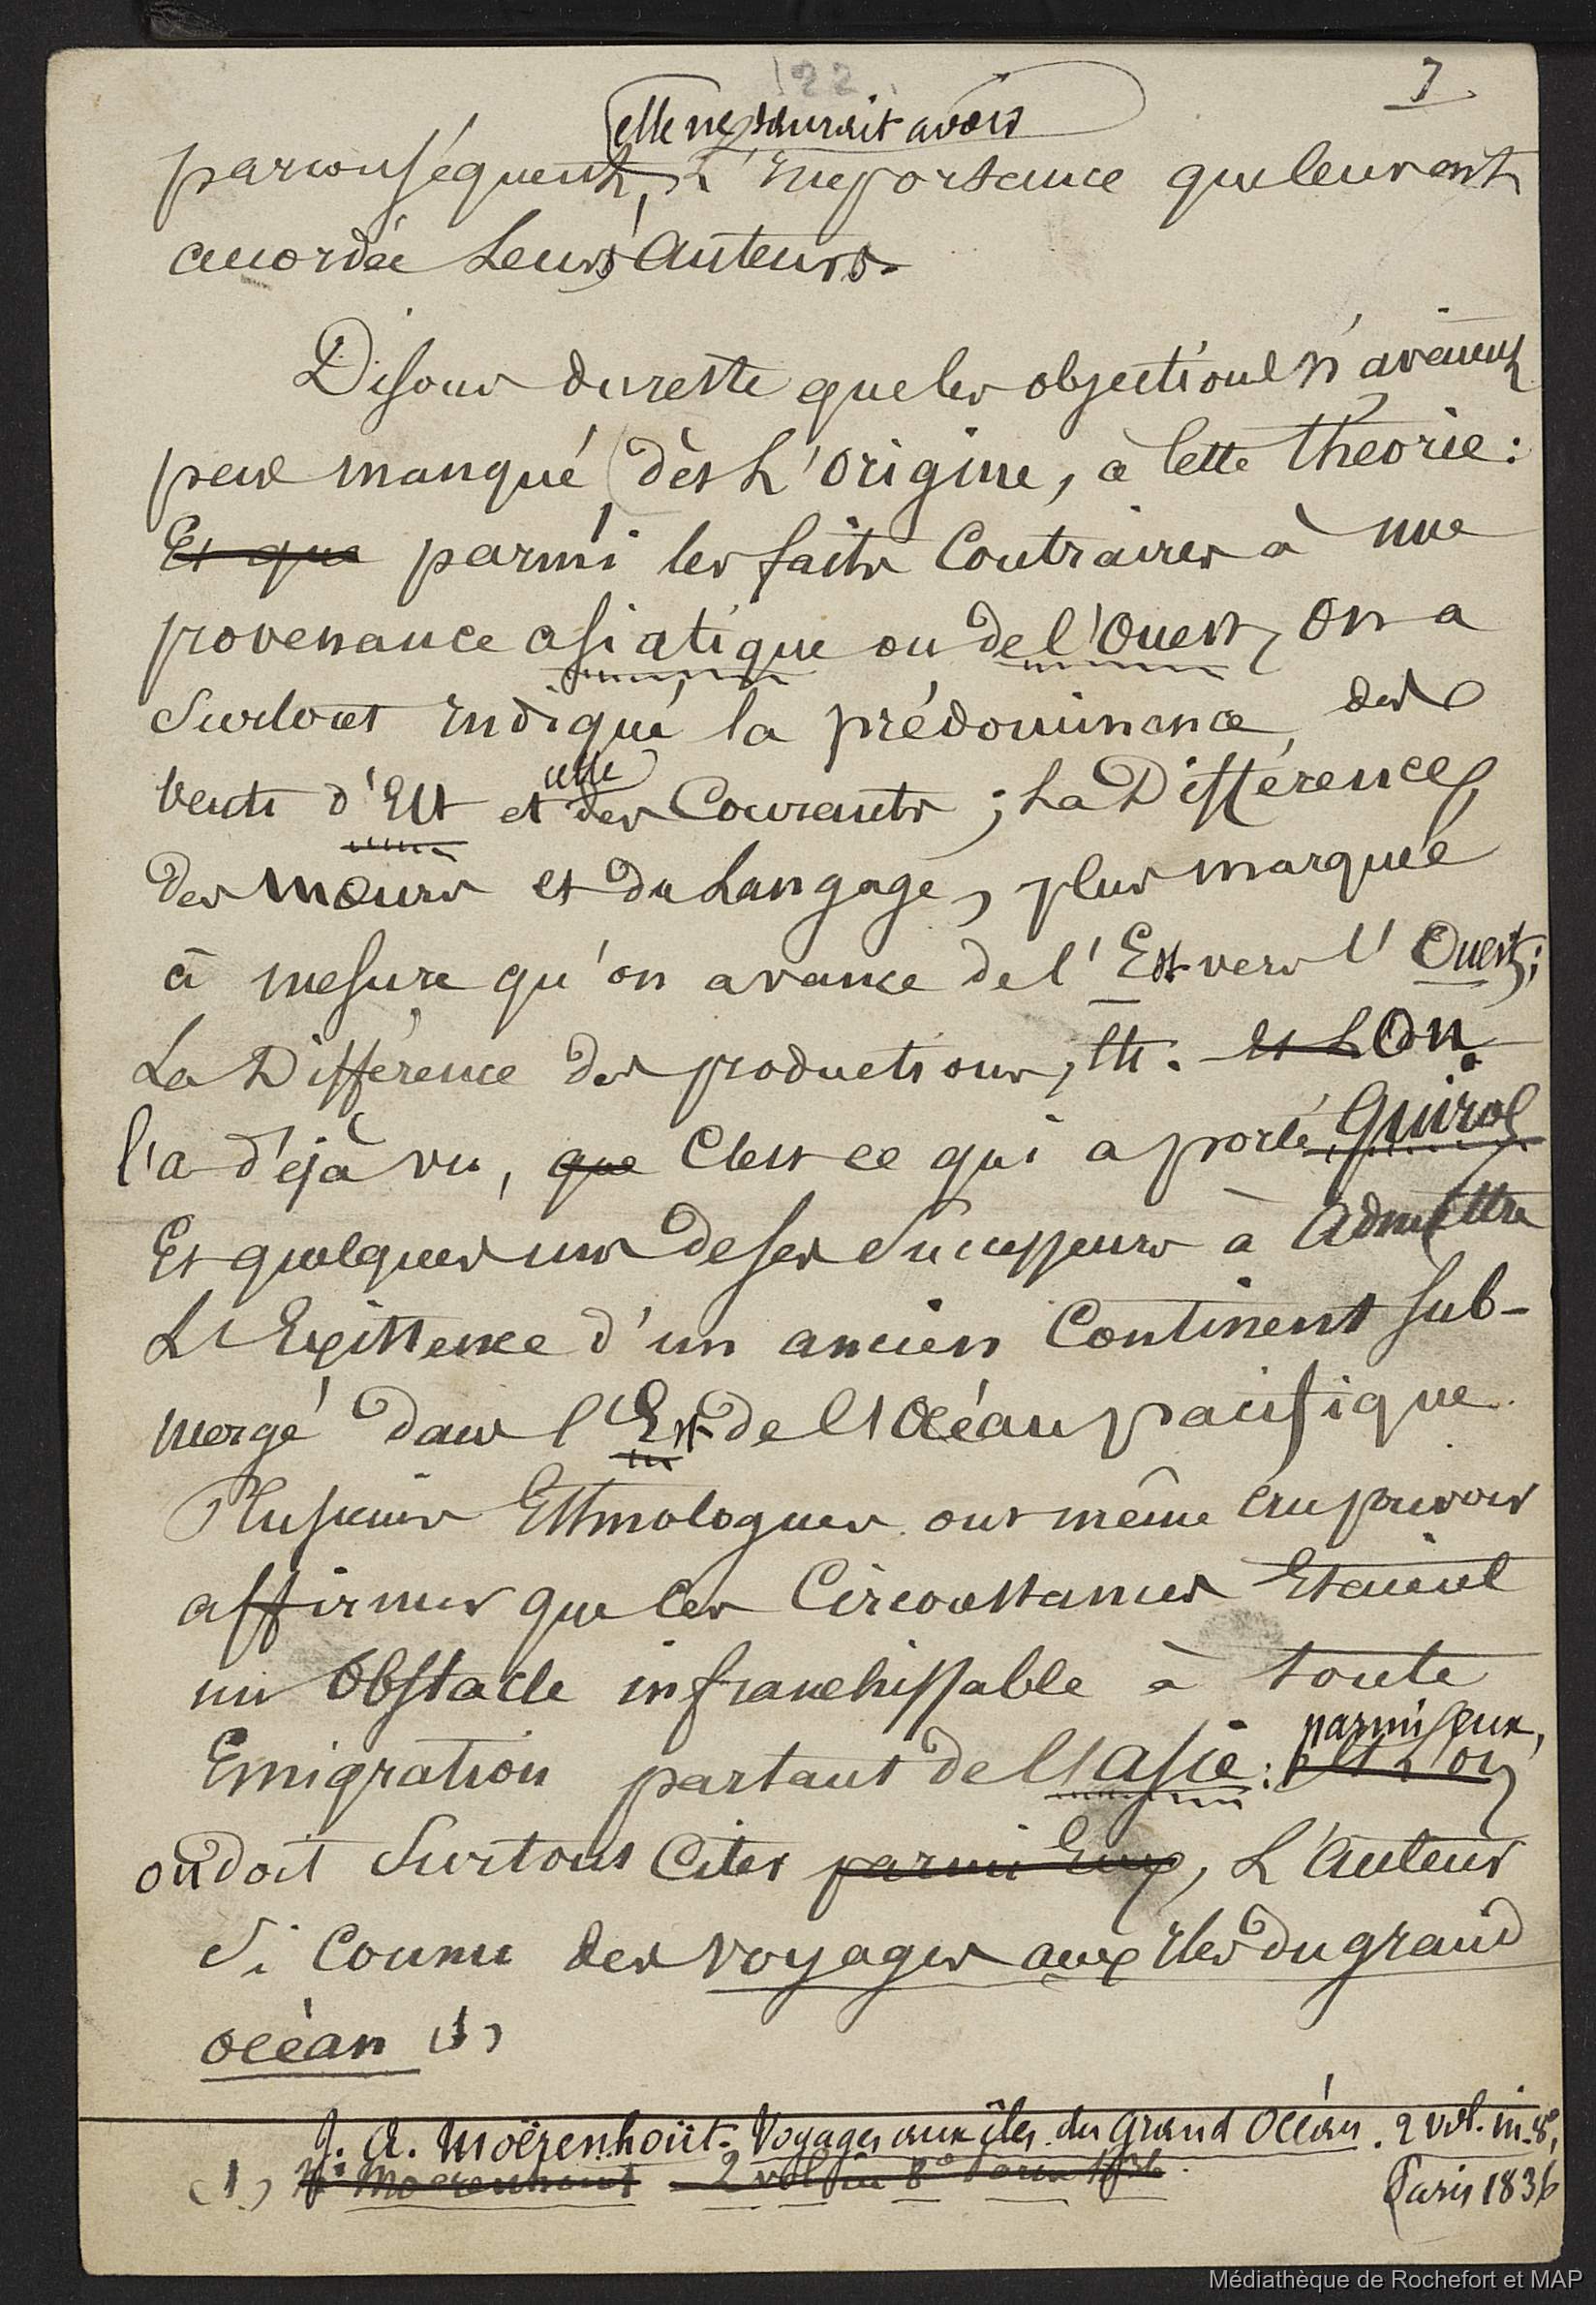 122
7
elle ne saurait avoir
par conséquent, L'Importance que leur ont
accordée Leurs Auteurs.
Disons du reste que les objections n'avaient
pas manqué dès L'Origine, à Cette Théorie :
Et que parmi les faits Contraires à une
provenance asiatique ou de l'Ouest, On a
Surtout Indiqué la prédominance des
Vents d'Est et celle des Courants ; La Différence,
Des Mœurs et du Langage, plus marquée
à mesure qu'on avance de l'Est vers l'Ouest ;
La Différence des productions, etc. et L'On
l'a déjà vu, que C'est ce qui a porté Quiros
Et quelques uns de ses Successeurs à Admettre
L'Existence d'un ancien Continent sub-
mergé dans l'Est de l'Océan pacifique
Plusieurs Ethnologues ont même cru pouvoir
affirmer que ces Circonstances Etaient
un Obstacle infranchissable à toute
Emigration partant de l'Asie : parmi eux, et L'on
on doit Surtout Citer parmi Eux, L'Auteur
Si Connu des Voyages aux Iles du grand
océan (1)
J. A. Moërenhoüt. Voyages aux îles du Grand Océan. 2 vol. in-8º,
(1) Mr Moerenhout 2 vol in 8º Paris 1836.
Paris 1836
Médiathèque de Rochefort et MAP